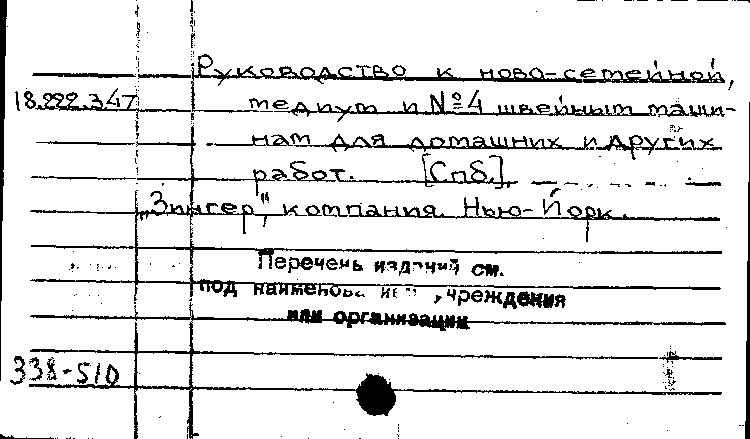 Руководство к ново-семейной,
18.222.347 медиум и №4 швейным маши-
нам для домашних и других
работ. [Спб.],
„Зингер", компания. Нью-Йорк.
Перечень изданий см.
под наименованием учреждения
или организации
338-510